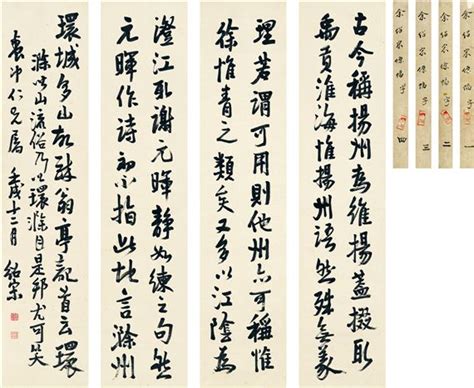 古今稱揚州為維揚蓋掇取
禹貢淮海惟揚州語然殊無義
理若謂可用則他州亦可稱惟
徐惟青之類矣又多以江陰為
澄江取謝元暉靜如練之句然
元暉作詩初不指此地言滁州
環城多山故醉翁亭記首云環
滁以山流俗乃以環滁目是邦尤可笑
冲仁兄屬 壬戌十二月 紹宋
余紹宋條幅字 一
余紹宋條幅字 二
余紹宋條幅字 三
余紹宋條幅字 四